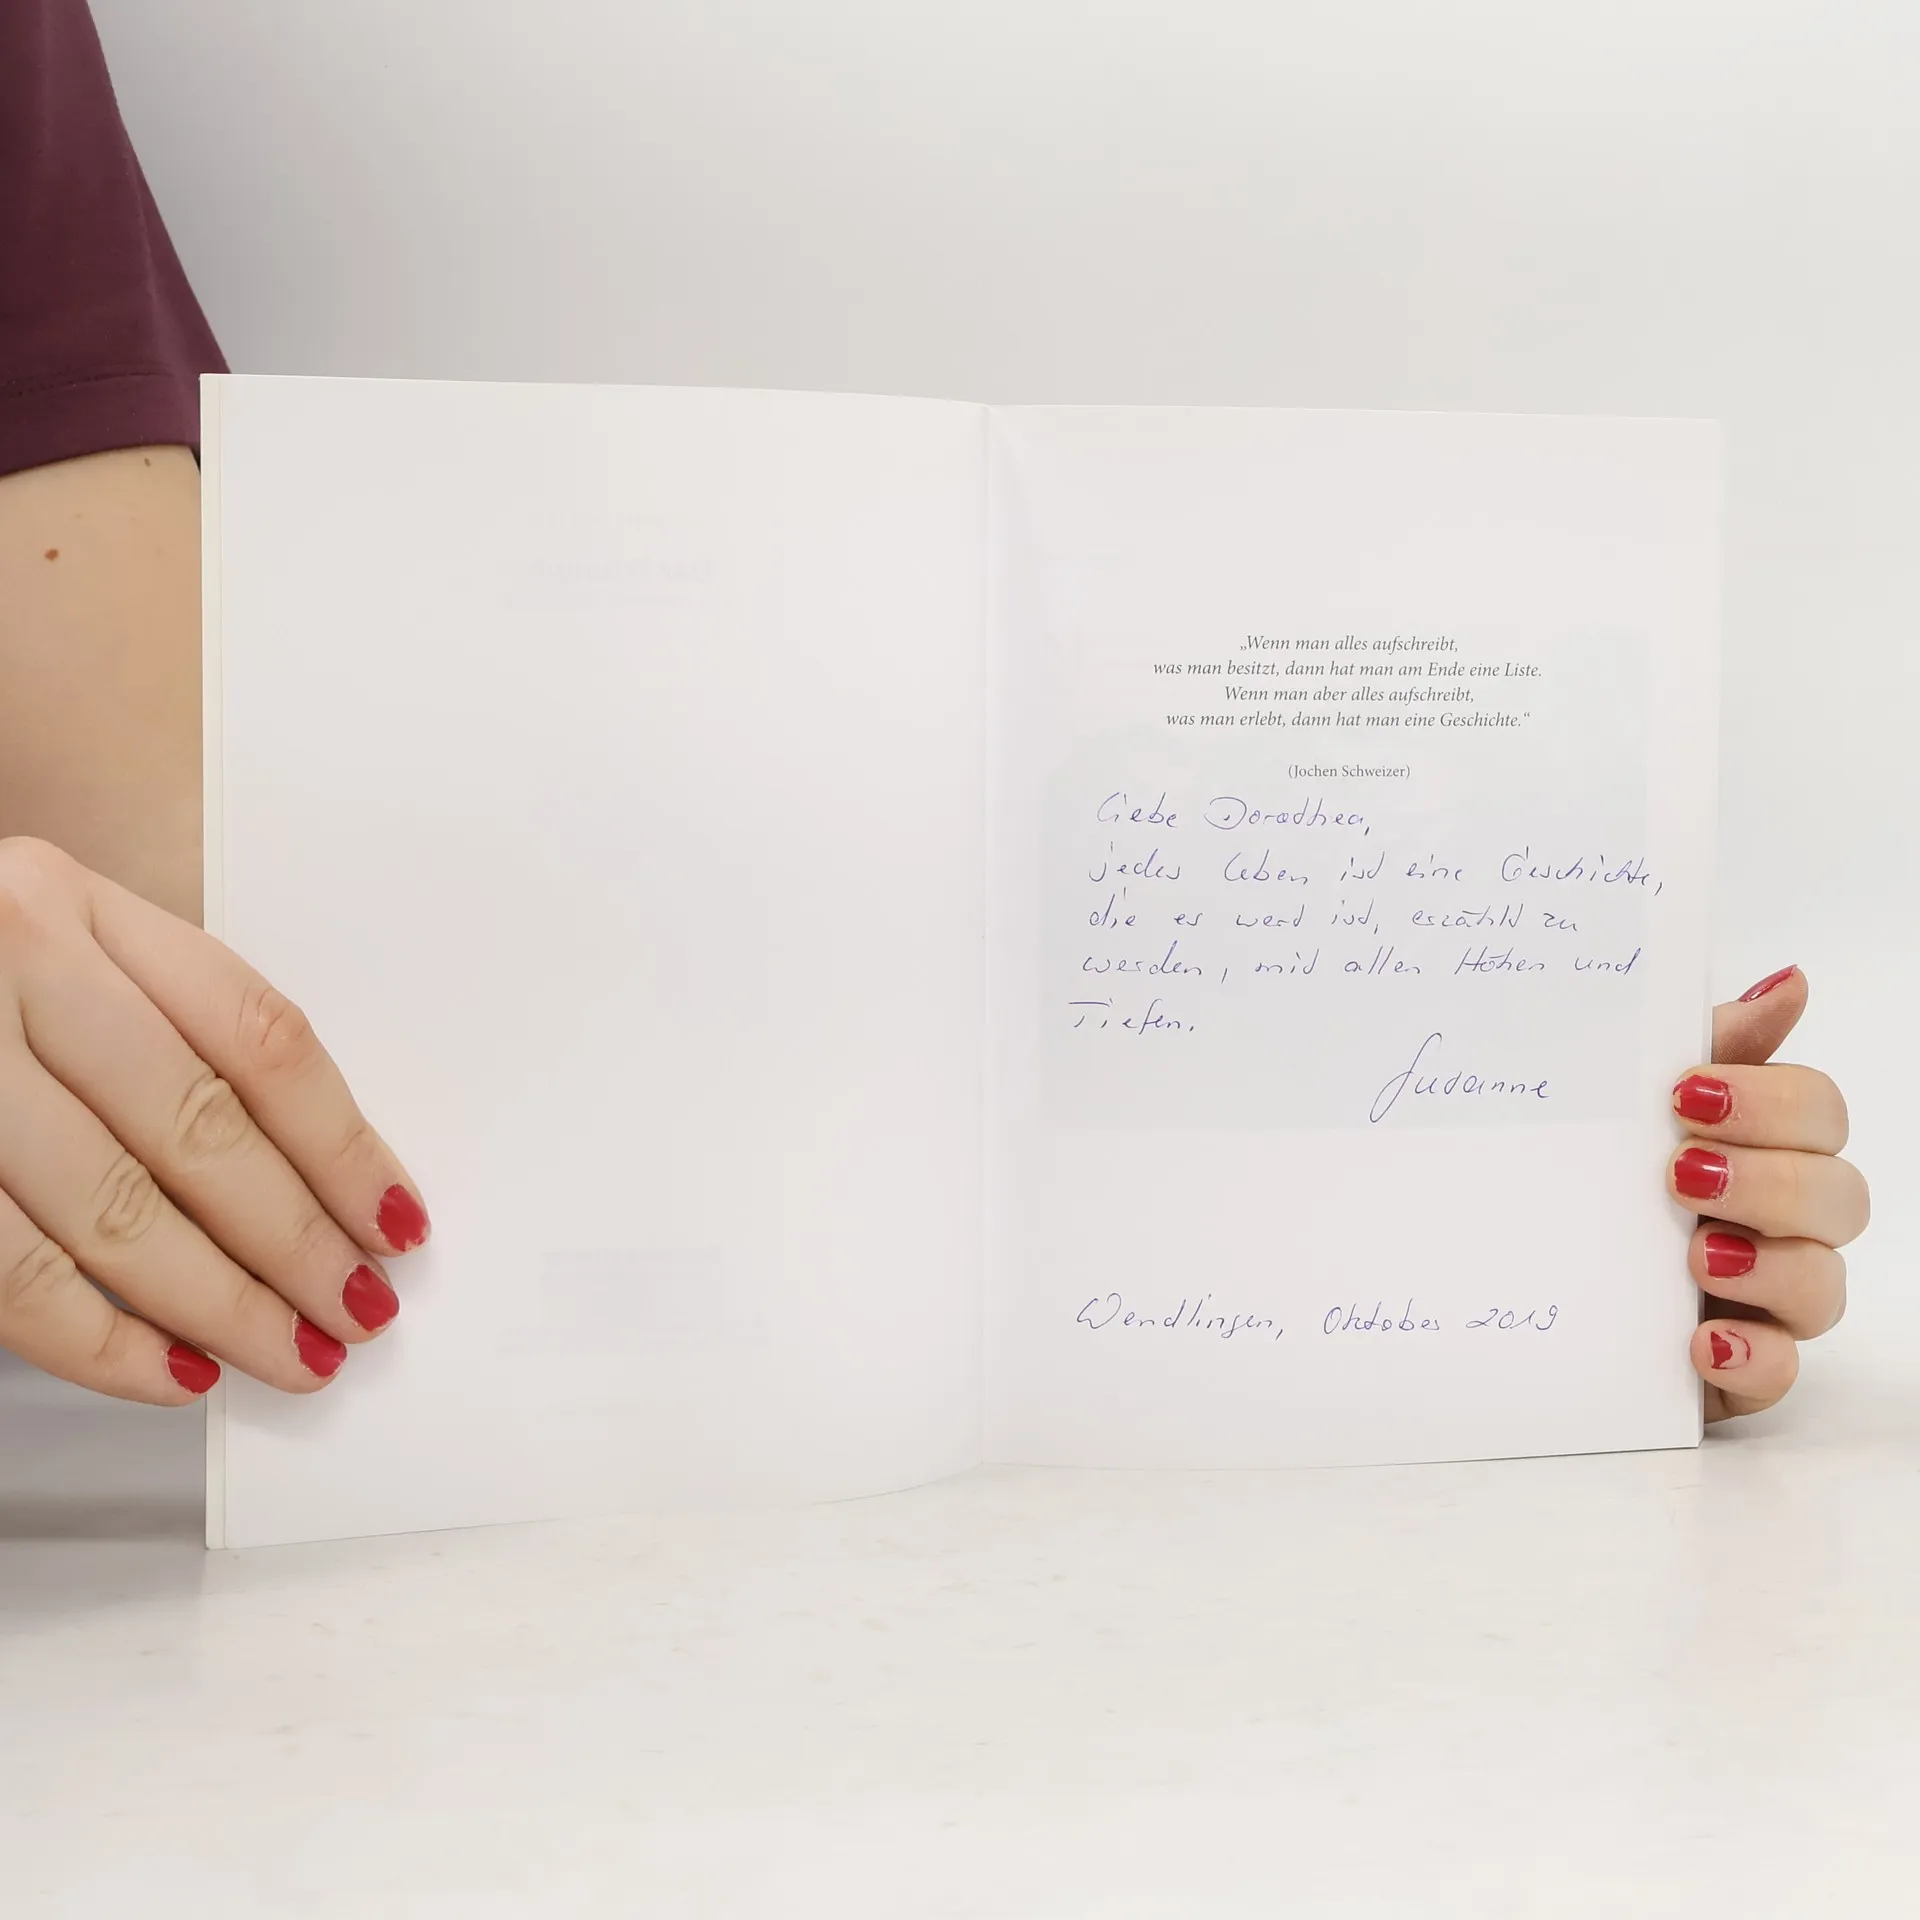 „Wenn man alles aufschreibt,
was man besitzt, dann hat man am Ende eine Liste.
Wenn man aber alles aufschreibt,
was man erlebt, dann hat man eine Geschichte.“
(Jochen Schweizer)
Liebe Dorothea,
jedes Leben ist eine Geschichte,
die es wert ist, erzählt zu
werden, mit allen Höhen und
Tiefen.
Susanne
Wendlingen, Oktober 2019